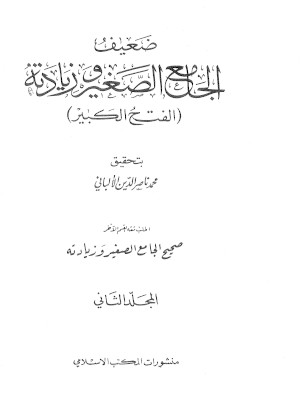 ضَعيفُ
الجامع الصَّغير وزيادته
(الفتح الكبير)
بتحقيق
محمد ناصر الدين الألباني
اطلب معه القسم الآخر
صحيح الجامع الصغير وزيادته
المجلد الثاني
منشورات المكتب الإسلامي